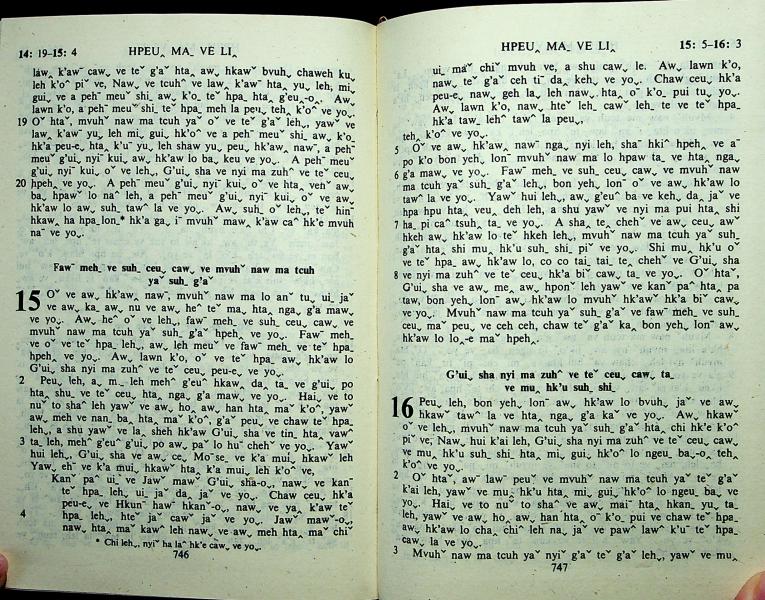 14: 19–15: 4 HPEU‸ MA_ VE LI‸
law‸ k'aw˯ caw˯ ve teˇ g'aˇ hta‸ aw‸ hkaw˯ bvuh˯ chaweh ku˯
leh k'o^ pi ve, Naw ve tcuh^ ve law‸ k'aw^ hta‸ yu˯ leh, mi‸
gui‸ ve a pehˉ meuˇ shi_ aw‸ k'o_ teˇ hpa_ hta‸ g'eu‸-o˯. Aw˯
lawn k'o, a pehˉ meuˇ shi_ teˇ hpa_ meh la peu˯ teh‸ k'o^ ve yo˯.
19 Oˇ htaˇ, mvuhˇ naw ma tcuh yaˇ oˇ ve teˇ g'aˇ leh˯, yawˇ ve
law‸ k'aw^ yu˯ leh mi‸ gui‸ hk'o^ ve a pehˉ meuˇ shi_ aw‸ k'o_
hk'a peu-e˯ hta‸ k'uˉ yu˯ leh shaw yu˯ peu˯ hk'aw‸ nawˇ, a pehˉ
meuˇ g'ui_ nyiˇ kui‸ aw‸ hk'aw lo ba‸ keu ve yo˯. A pehˉ meuˇ
g'ui_ nyiˇ kui‸ oˇ ve leh˯, G'ui‸ sha ve nyi ma zuh^ ve teˇ ceu˯
20 hpeh‸ ve yo˯. A pehˉ meuˇ g'ui_ nyiˇ kui‸ oˇ ve htaˇ vehˇ aw‸
ba‸ hpawˇ lo na^ leh, a pehˉ meuˇ g'ui_ nyiˇ kui‸ oˇ ve aw‸
hk'aw lo aw‸ suh_ taw^ la ve yo˯. Aw‸ suh_ oˇ leh˯, teˇ hinˉ
hkaw‸ ha hpa_lon_* hk'a ga‸ iˉ mvuh maw‸ k'aw ca^ hk'e mvuh
naˉ ve yo˯.
Fawˇ meh_ ve suh_ ceu˯ caw˯ ve mvuhˇ naw ma tcuh
yaˇ suh_ g'aˇ
15 Oˇ ve aw‸ hk'aw‸ nawˇ, mvuhˇ naw ma lo anˇ tu‸ ui_ jaˇ
ve aw‸ ka_ aw‸ nu ve aw‸ he^ teˇ ma‸ hta‸ nga‸ g'a maw˯
ve yo˯. Aw‸ he^ oˇ ve leh˯, fawˇ meh_ ve suh_ ceu˯ caw˯ ve
mvuhˇ naw ma tcuh yaˇ suh_ g'aˇ hpeh‸ ve yo˯. Fawˇ meh_
ve oˇ ve teˇ hpa_ leh˯, aw˯ leh meuˇ ve fawˇ meh_ ve teˇ hpa_
hpeh‸ ve yo˯. Aw˯ lawn k'o, oˇ ve teˇ hpa_ aw‸ hk'aw lo
G'ui‸ sha nyi ma zuh^ ve teˇ ceu˯ peu-e˯ ve yo˯.
2 Peu˯ leh, a_ mi_ leh meh^ g'eu^ hkaw‸ da‸ ta‸ ve g'ui‸ po
hta‸ shu‸ ve teˇ ceu˯ hta‸ nga‸ g'a maw˯ ve yo˯. Hai‸ ve to
nuˇ to sha^ leh yawˇ ve aw‸ ho‸ aw‸ han hta‸ maˇ k'o^, yawˇ
aw‸ meh ve nan_ ba‸ hta‸ maˇ k'o^, g'aˇ peu˯ ve chaw teˇ hpa_
leh˯, a shu yawˇ ve la‸ sheh hk'aw G'ui‸ sha ve tin_ hta‸ vawˇ
3 ta‸ leh, meh^ g'eu^ g'ui‸ po aw‸ paˇ lo huˉ chehˇ ve yo˯. Yawˇ
hui leh˯, G'ui‸ sha ve aw‸ ce‸ Moˉse_ ve k'a mui‸ hkaw^ leh
Yaw‸ ehˉ ve k'a mui‸ hkaw^ hta‸ k'a mui‸ leh k'o^ ve,
Kanˇ pa^ ui_ ve Jawˇ mawˇ G'ui‸ sha-o˯, naw‸ ve kanˉ
teˇ hpa_ leh˯ ui_ jaˇ da‸ jaˇ ve yo˯. Chaw ceu˯ hk'a
peu-e˯ ve Hkunˉ hawˇ hkanˇ-o˯, naw‸ ve ya‸ k'aw teˇ
4 hpa_ leh˯, hteˇ jaˇ cawˇ jaˇ ve yo˯. Jawˇ mawˇ-o˯,
naw‸ hta‸ maˇ kaw^ leh naw‸ ve aw‸ meh hta‸ maˇ chiˇ
* Chi leh˯, nyiˇ ha la^ hk'e caw˯ ve yo˯.
746
HPEU‸ MA_ VE LI‸ 15: 5–16: 3
ui_ maˇ chiˇ mvuh ve, a shu caw˯ le. Aw˯ lawn k'o,
naw‸ teˇ g'aˇ ceh tiˉ da‸ keh‸ ve yo˯. Chaw ceu˯ hk'a
peu-e˯ naw‸ geh la˯ leh naw‸ hta‸ oˉ k'o‸ pui tu‸ yo˯.
Aw˯ lawn k'o, naw‸ hteˇ leh˯ caw^ leh_ te ve teˇ hpa_
hk'a taw_ leh^ taw^ la peu˯,
teh‸ k'o^ ve yo˯.
5 Oˇ ve aw‸ hk'aw‸ nawˇ nga‸ nyi leh, shaˉ hki^ hpeh‸ ve aˉ
po k'o bon yeh_ lonˉ mvuhˇ naw ma lo hpaw ta‸ ve hta‸ nga‸
6 g'a maw˯ ve yo˯. Fawˇ meh_ ve suh_ ceu˯ caw˯ ve mvuhˇ naw
ma tcuh yaˇ suh_ g'aˇ leh˯, bon yeh_ lonˉ oˇ ve aw‸ hk'aw lo
taw^ la ve yo˯. Yawˇ hui leh˯, aw‸ g'eu^ ba ve keh‸ da‸ jaˇ ve
hpa hpu hta‸ veu‸ deh leh, a shu yaw ve nyi ma pui hta‸ shi
7 ha‸ pi ca^ tsuh‸ ta‸ ve yo˯. A sha‸ te‸ chehˇ ve aw‸ ceu˯ awˇ
hkeh aw‸ hk'aw lo teˇ hkeh leh˯, mvuhˇ naw ma tcuh yaˇ suh_
g'aˇ hta‸ shi mu‸ hk'u suh_ shi_ pi ve yo˯. Shi mu‸ hk'u oˇ
ve teˇ hpa_ aw‸ hk'aw lo, co co tai_ tai_ te‸ chehˇ ve G'ui‸ sha
8 ve nyi ma zuh^ ve teˇ ceu˯ hk'a biˇ caw˯ ta‸ ve yo˯. Oˇ htaˇ,
G'ui‸ sha ve aw‸ me‸ aw‸ hponˇ leh yawˇ ve kanˇ pa^ hta‸ pa
taw, bon yeh_ lonˉ aw‸ hk'aw lo mvuh hk'awˇ hk'a biˇ caw˯
ve yo˯. Mvuhˇ naw ma tcuh yaˇ suh_ g'aˇ ve fawˇ meh_ ve suh_
ceu˯ maˇ peu˯ ve ceh ceh, chaw teˇ g'aˇ ka‸ bon yeh_ lonˉ aw‸
hk'aw lo lo‸-e maˇ hpeh‸.
G'ui‸ sha nyi ma zuh^ ve teˇ ceu˯ caw˯ ta_
ve mu‸ hk'u suh_ shi_
16 Peu˯ leh, bon yeh_ lonˉ aw‸ hk'aw lo bvuh˯ jaˇ ve aw‸
hkawˇ taw^ la ve hta‸ nga‸ g'a ka ve yo˯. Aw‸ hkawˇ
oˇ ve leh˯, mvuhˇ naw ma tcuh yaˇ suh_ g'aˇ hta‸ chi hk'e k'o^
pi ve, Naw‸ hui k'ai leh, G'ui‸ sha nyi ma zuh^ ve teˇ ceu˯ caw˯
ve mu‸ hk'u suh_ shi_ hta‸ mi‸ gui‸ hk'o^ lo ngeu_ ba˯-o‸ teh‸
k'o^ ve yo˯.
2 Oˇ htaˇ, aw˯ lawˇ peuˇ ve mvuhˇ naw ma tcuh yaˇ teˇ g'aˇ
k'ai leh, yawˇ ve mu‸ hk'u hta‸ mi‸ gui‸ hk'o^ lo ngeu_ ba˯ ve
yo˯. Hai‸ ve to nuˇ to sha^ ve aw‸ maiˇ hta‸ hkan_ yu‸ ta‸
leh, yawˇ ve aw‸ ho‸ aw‸ han hta‸ oˉ k'o‸ pui ve chaw teˇ hpa_
aw‸ hk'aw lo cha‸ chi^ leh na‸ jaˇ ve paw^ law^ k'uˉ teˇ hpa_
caw˯ la ve yo˯.
3 Mvuhˇ naw ma tcuh yaˇ nyiˇ g'aˇ teˇ g'aˇ leh˯, yawˇ ve mu‸
747